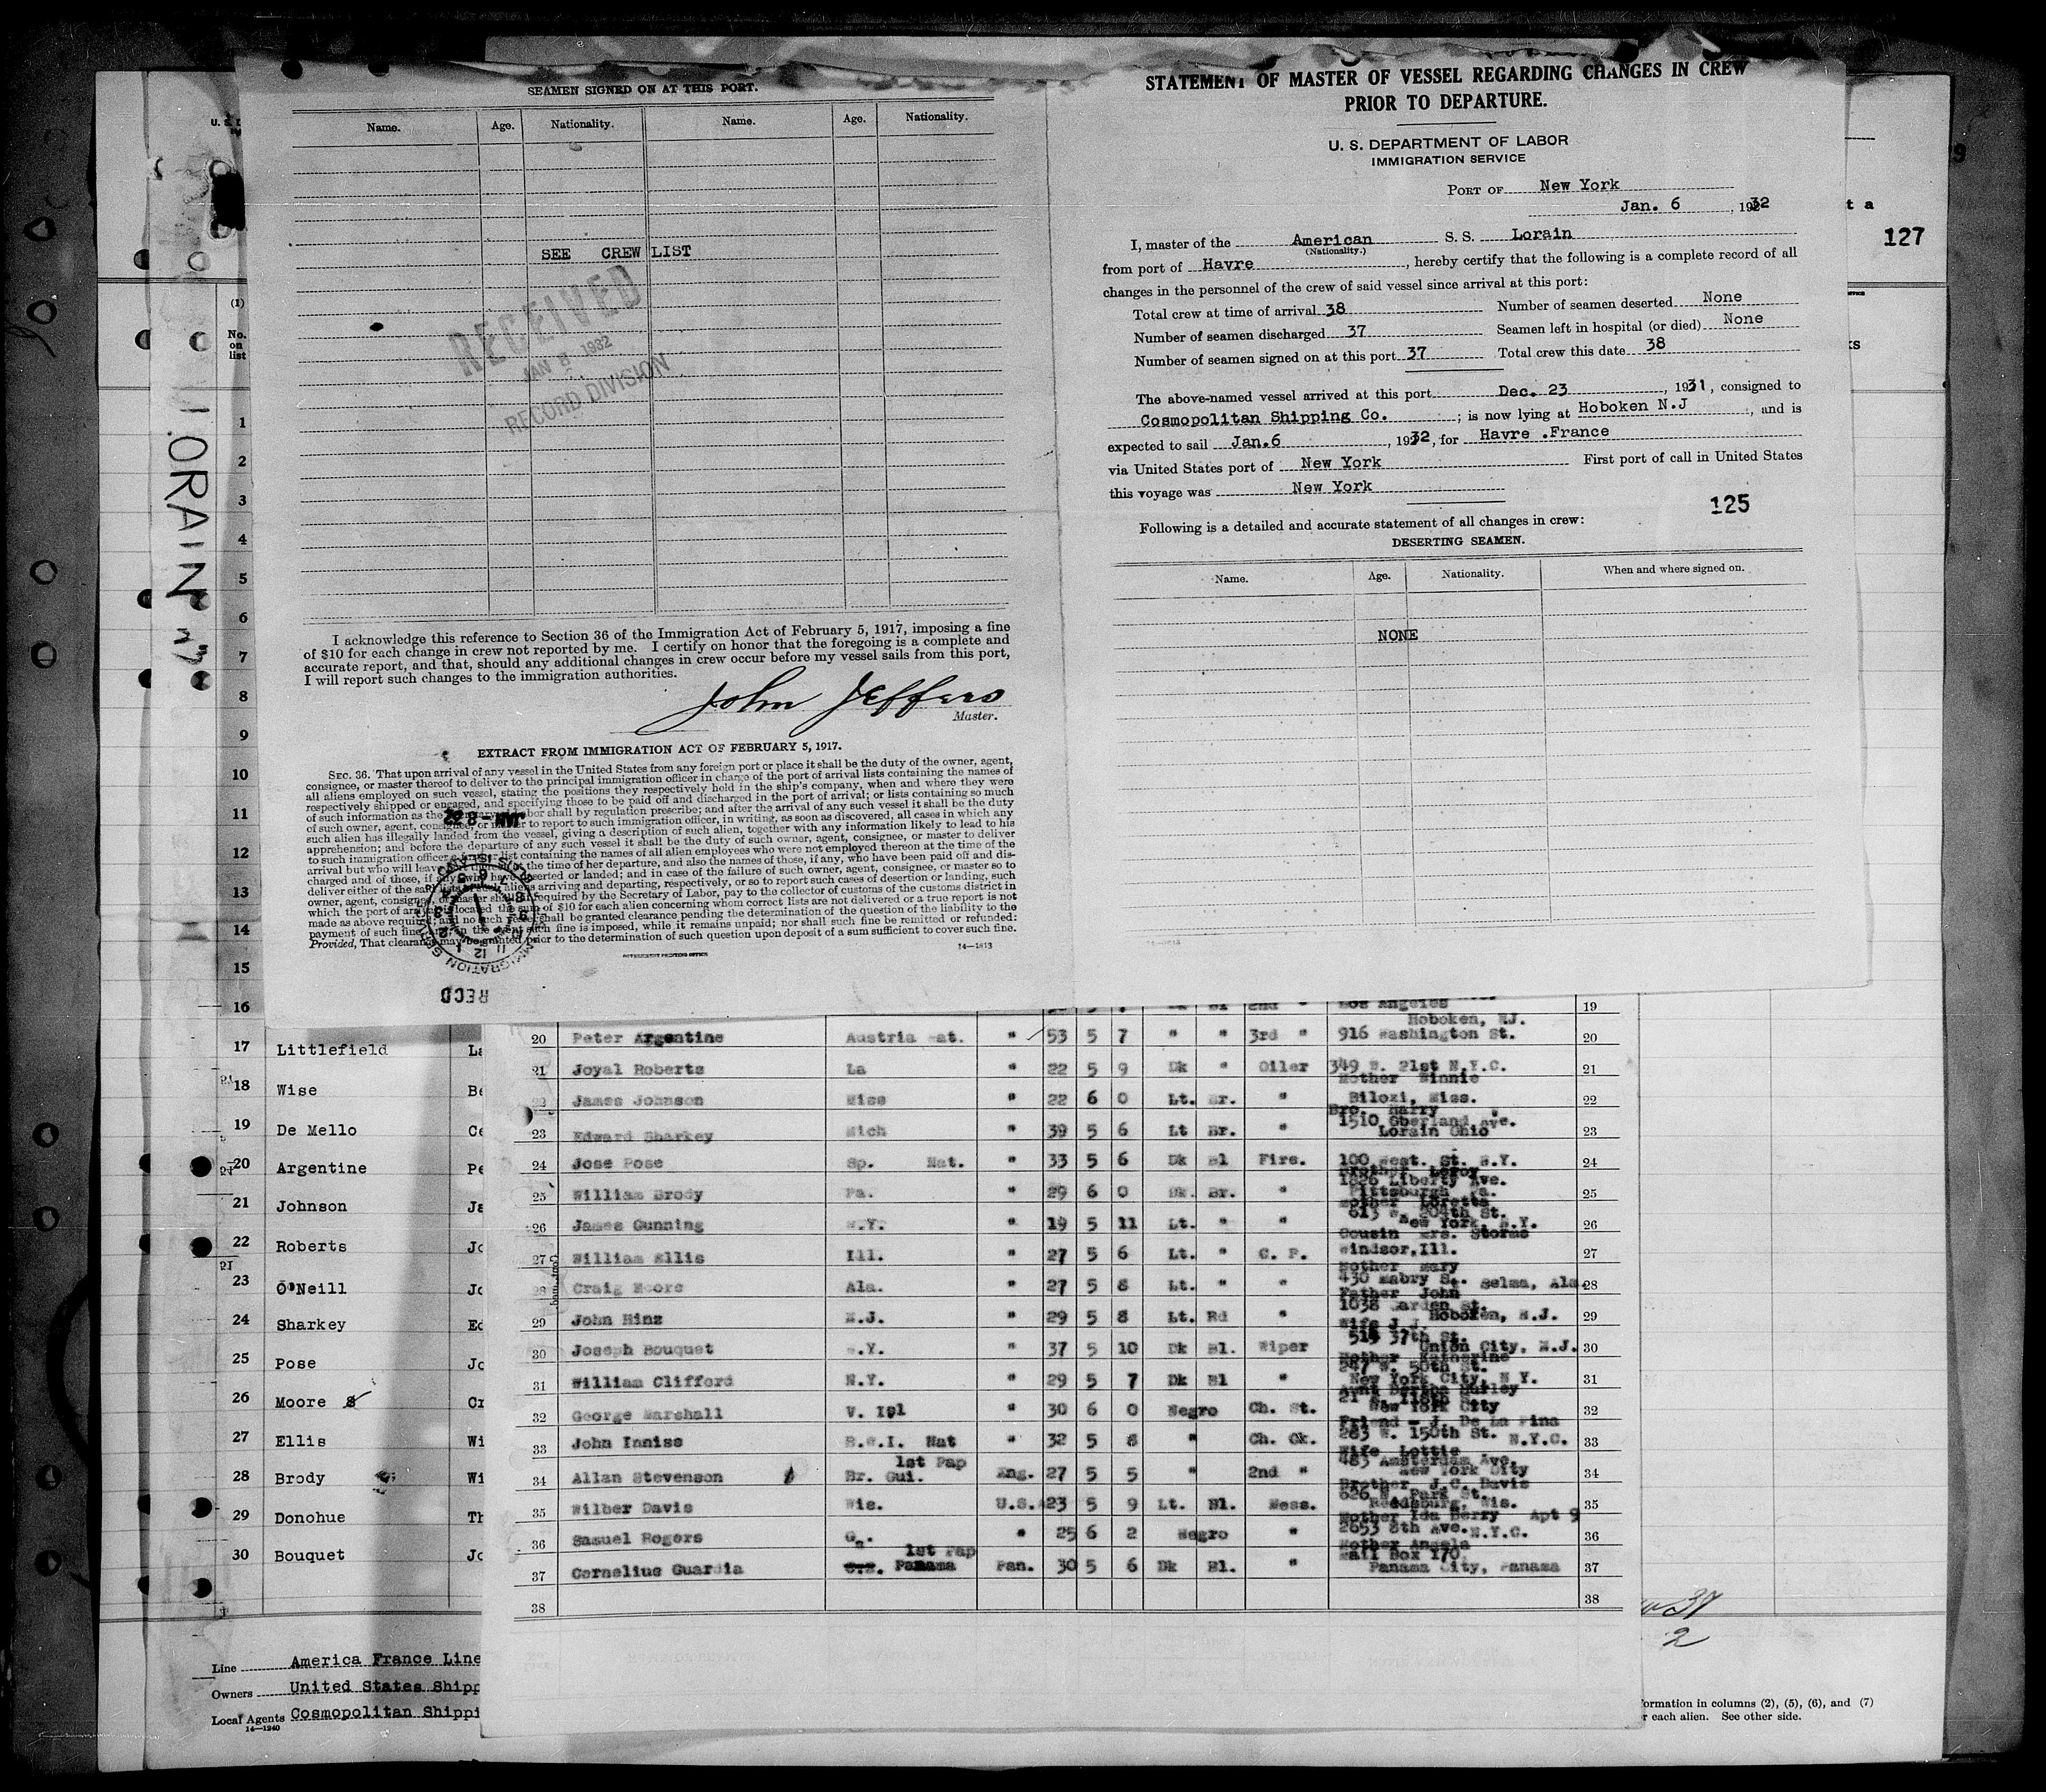 SEAMEN SIGNED ON AT THIS PORT.
Name. Age. Nationality. Name. Age. Nationality.
SEE CREW LIST
RECEIVED
JAN 8 1932
RECORD DIVISION
I acknowledge this reference to Section 36 of the Immigration Act of February 5, 1917, imposing a fine
of $10 for each change in crew not reported by me. I certify on honor that the foregoing is a complete and
accurate report, and that, should any additional changes in crew occur before my vessel sails from this port,
I will report such changes to the immigration authorities.
John Jeffers
Master.
EXTRACT FROM IMMIGRATION ACT OF FEBRUARY 5, 1917.
SEC. 36. That upon arrival of any vessel in the United States from any foreign port or place it shall be the duty of the owner, agent,
consignee, or master thereof to deliver to the principal immigration officer in charge of the port of arrival lists containing the names of
all aliens employed on such vessel, stating the positions they respectively hold in the ship's company, when and where they were
respectively shipped or engaged, and specifying those to be paid off and discharged in the port of arrival; or lists containing so much
of such information as the Secretary of Labor shall by regulation prescribe; and after the arrival of any such vessel it shall be the duty
of such owner, agent, consignee, or master to report to such immigration officer, in writing, as soon as discovered, all cases in which any
such alien has illegally landed from the vessel, giving a description of such alien, together with any information likely to lead to his
apprehension; and before the departure of any such vessel it shall be the duty of such owner, agent, consignee, or master to deliver
to such immigration officer a further list containing the names of all alien employees who were not employed thereon at the time of the
arrival but who will leave port thereon at the time of her departure, and also the names of those, if any, who have been paid off and dis-
charged and of those, if any, who have deserted or landed; and in case of the failure of such owner, agent, consignee, or master so to
deliver either of the said lists of such aliens arriving and departing, respectively, or so to report such cases of desertion or landing, such
owner, agent, consignee, or master shall, if required by the Secretary of Labor, pay to the collector of customs of the customs district in
which the port of arrival is located the sum of $10 for each alien concerning whom correct lists are not delivered or a true report is not
made as above required; and no such vessel shall be granted clearance pending the determination of the question of the liability to the
payment of such fine, and, in the event such fine is imposed, while it remains unpaid; nor shall such fine be remitted or refunded:
Provided, That clearance may be granted prior to the determination of such question upon deposit of a sum sufficient to cover such fine.
GOVERNMENT PRINTING OFFICE 14—1813
RECD
STATEMENT OF MASTER OF VESSEL REGARDING CHANGES IN CREW
PRIOR TO DEPARTURE.
U. S. DEPARTMENT OF LABOR
IMMIGRATION SERVICE
PORT OF New York
Jan. 6, 1932
I, master of the American S. S. Lorain
(Nationality.)
from port of Havre, hereby certify that the following is a complete record of all
changes in the personnel of the crew of said vessel since arrival at this port:
Total crew at time of arrival 38 Number of seamen deserted None
Number of seamen discharged 37 Seamen left in hospital (or died) None
Number of seamen signed on at this port 37 Total crew this date 38
The above-named vessel arrived at this port Dec. 23, 1931, consigned to
Cosmopolitan Shipping Co.; is now lying at Hoboken N.J, and is
expected to sail Jan.6, 1932, for Havre .France
via United States port of New York First port of call in United States
this voyage was New York
125
Following is a detailed and accurate statement of all changes in crew:
DESERTING SEAMEN.
Name. Age. Nationality. When and where signed on.
NONE
t a
127
LORAIN
(1)
No.
on
list
1
2
3
4
5
6
7
8
9
10
11
12
13
14
15
16
17 Littlefield
18 Wise
19 De Mello
20 Argentine
21 Johnson
22 Roberts
23 O'Neill
24 Sharkey
25 Pose
26 Moore
27 Ellis
28 Brody
29 Donohue
30 Bouquet
Line America France Line
Owners United States Shipp
Local Agents Cosmopolitan Shippi
14—1240
Los Angeles 19
Hoboken, NJ.
20 Peter Argentine Austria Nat. " 53 5 7 " " 3rd " 916 Washington St. 20
21 Joyal Roberts La " 22 5 9 Dk " Oiler 349 W. 21st N.Y.C. 21
Mother Winnie
22 James Johnson Miss " 22 6 0 Lt. Br. " Biloxi, Miss. 22
Bro. Harry
1510 Oberland Ave.
23 Edward Sharkey Mich " 39 5 6 Lt Br. " Lorain Ohio 23
24 Jose Pose Sp. Nat. " 33 5 6 Dk Bl Firs. 100 West. St. N.Y. 24
Brother Leroy
1826 Liberty Ave.
25 William Brody Pa. " 29 6 0 Dk. Br. " Pittsburgh Pa. 25
Mother Loretta
613 W. 204th St.
26 James Gunning N.Y. " 19 5 11 Lt. " " New York, N.Y. 26
Cousin Mrs. Storms
27 William Ellis Ill. " 27 5 6 Lt. " C. P. Windsor, Ill. 27
Mother Mary
28 Craig Moore Ala. " 27 5 8 Lt. " " 430 Mabry St. Selma, Ala. 28
Father John
1038 Garden St.
29 John Hinz N.J. " 29 5 8 Lt. Rd " Hoboken, N.J. 29
Wife J.J.
515 37th St.
30 Joseph Bouquet N.Y. " 37 5 10 Dk Bl. Wiper Union City, N.J. 30
Mother Katherine
247 W. 50th St.
31 William Clifford N.Y. " 29 5 7 Dk Bl " New York City, N Y. 31
Aunt Bertha Hurley
32 George Marshall V. Isl " 30 6 0 Negro Ch. St. New York City 32
Friend - J. De La Pina
33 John Inniss B.W.I. Nat " 32 5 8 " Ch. Ck. 283 W. 150th St. N.Y.C. 33
Wife Lottie
1st Pap 483 Amsterdam Ave.
34 Allan Stevenson Br. Gui. Eng. 27 5 5 " 2nd " New York City 34
Brother J.C. Davis
626 N. Park St.
35 Wilber Davis Wis. U.S. 23 5 9 Lt. Bl. Mess. Reedsburg, Wis. 35
Mother Ida Berry Apt 9
36 Samuel Rogers Ga. " 25 6 2 Negro " 2653 8th Ave. N.Y.C. 36
Mother Angela
1st Pap Mail Box 170
37 Cornelius Guardia Panama Pan. 30 5 6 Dk Bl. " Panama City, Panama 37
38 38
37
2
formation in columns (2), (5), (6), and (7)
r each alien. See other side.